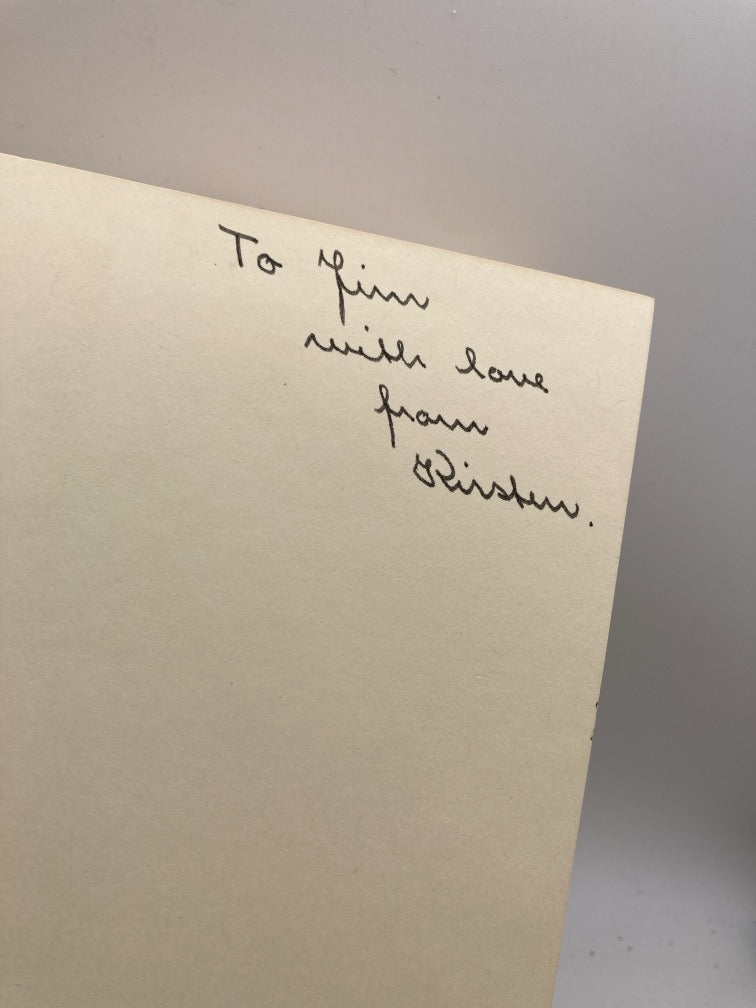 To Jim
with love
from
Kirsten.